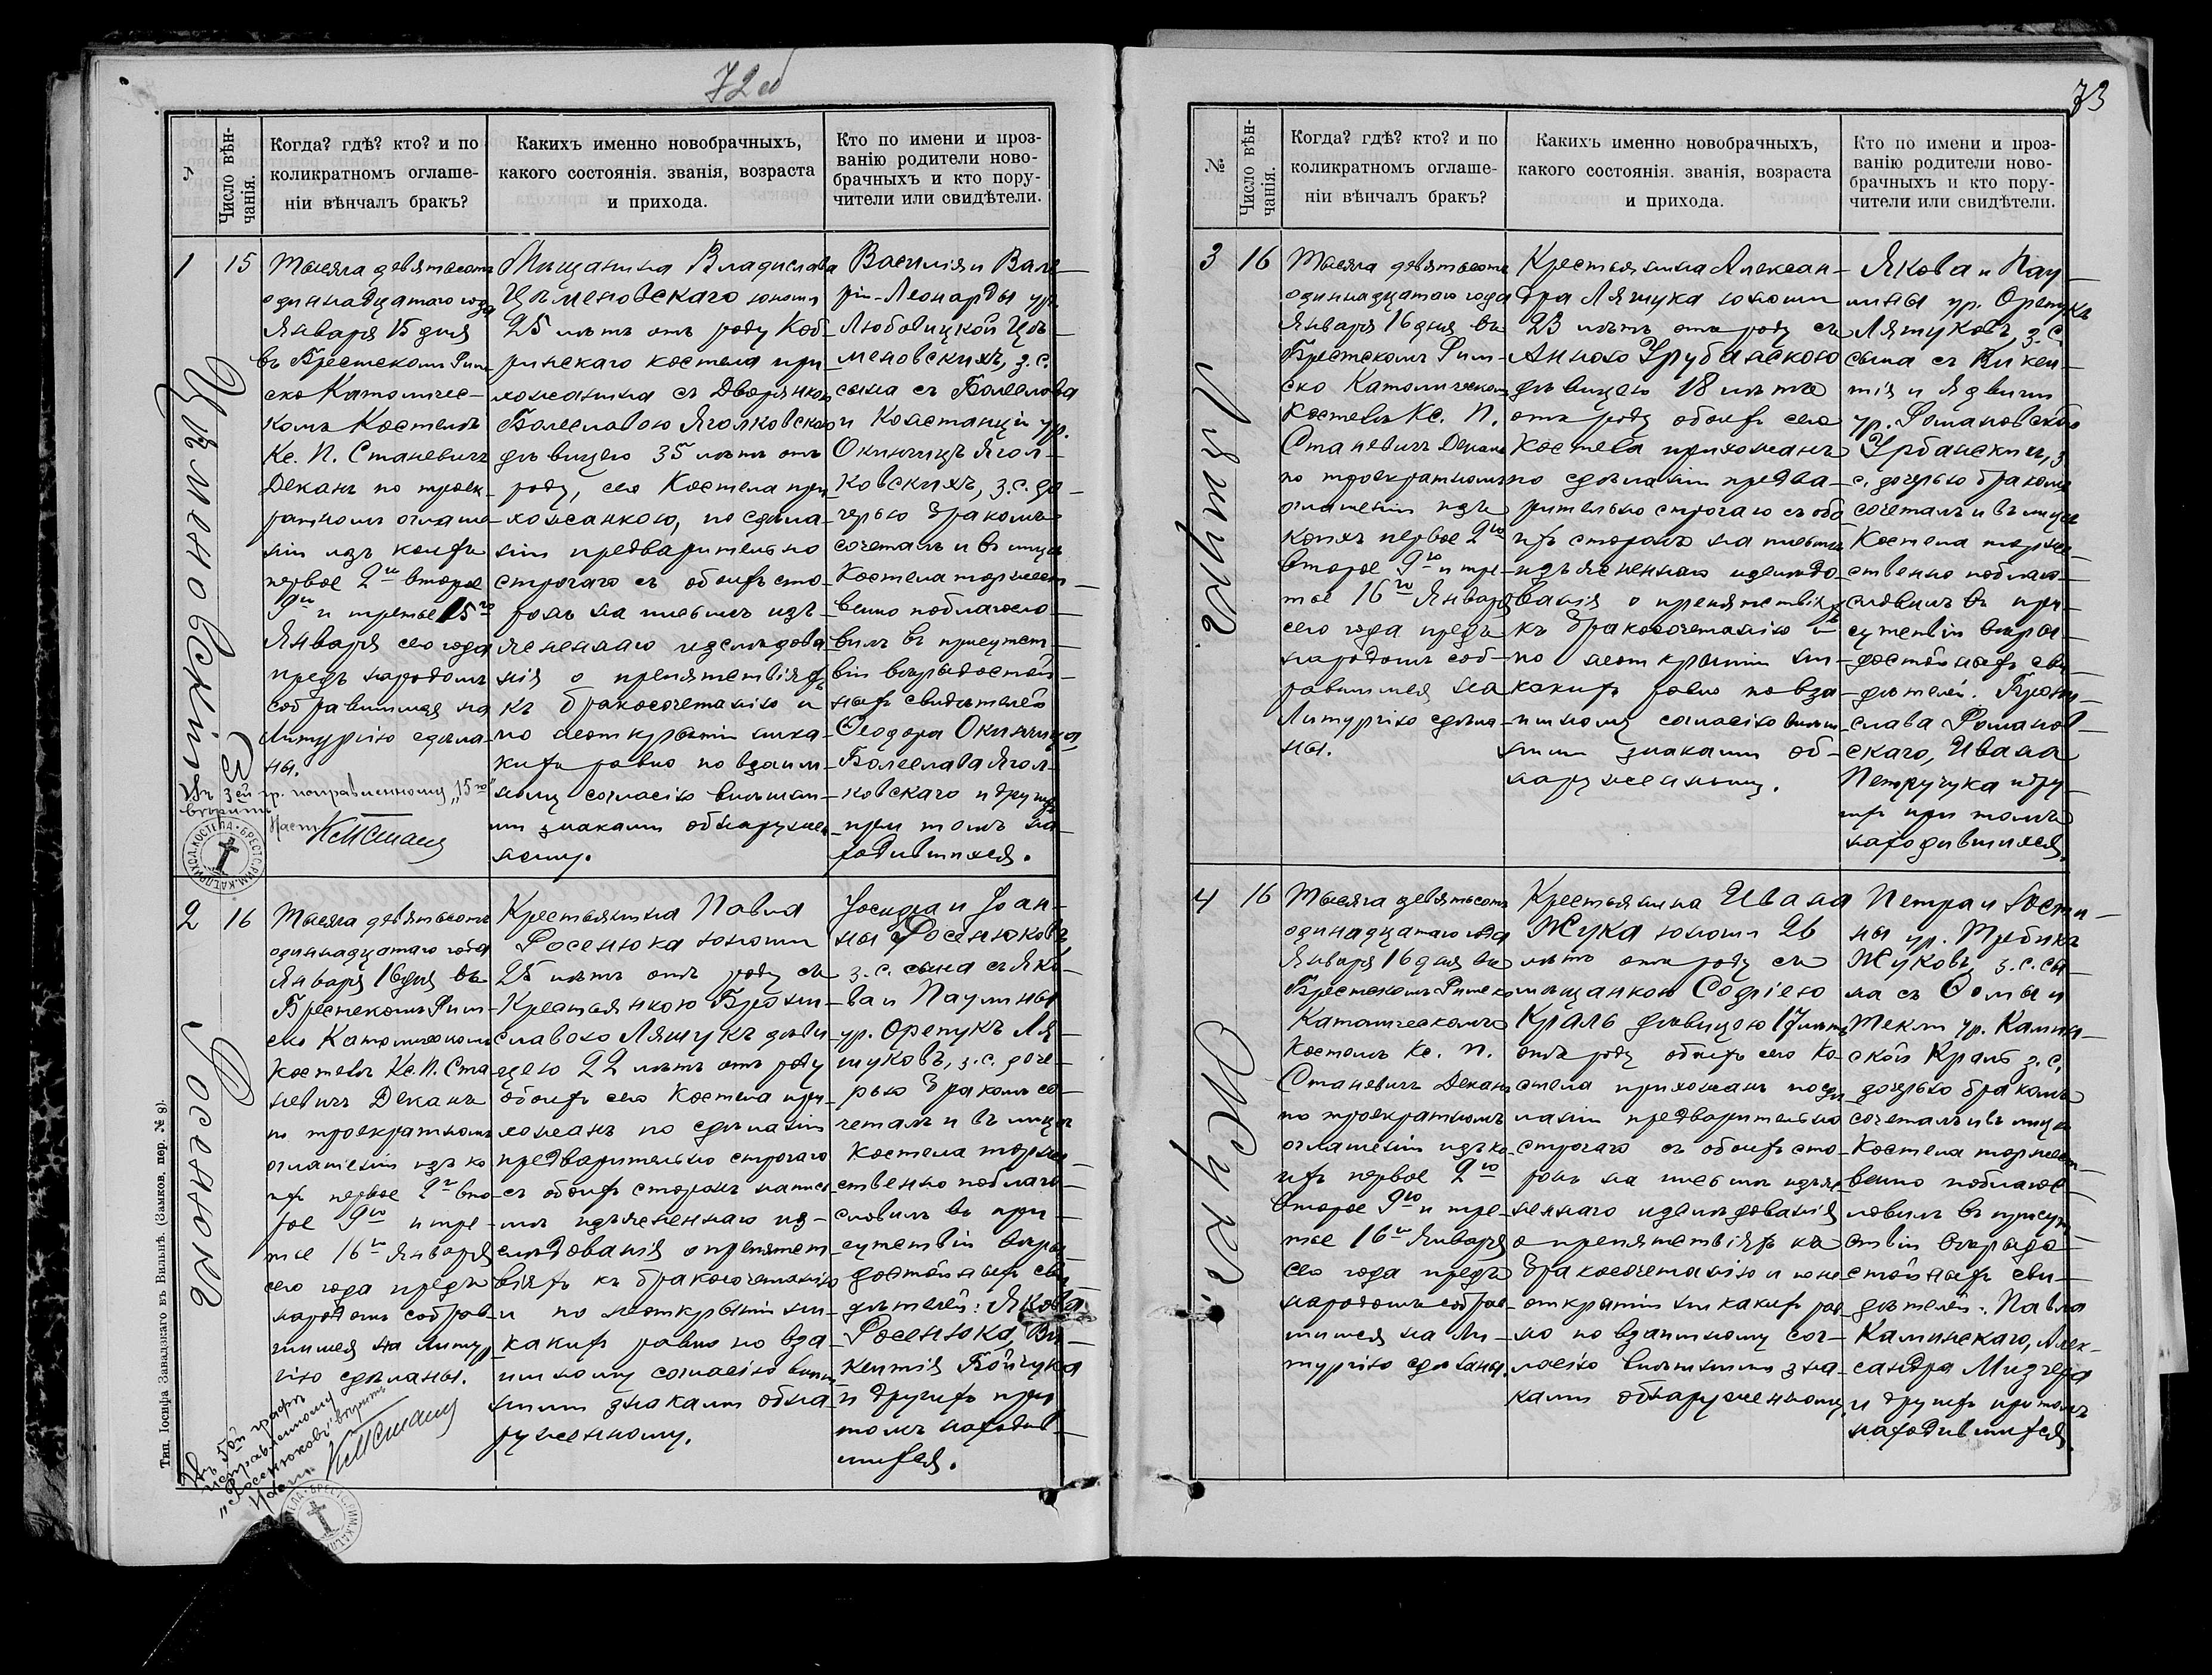 72 об
№
Число вѣн-
чанія.
Когда? гдѣ? кто? и по
коликратномъ оглаше-
ніи вѣнчалъ бракъ?
Какихъ именно новобрачныхъ,
какого состоянія. званія, возраста
и прихода.
Кто по имени и проз-
ванію родители ново-
брачныхъ и кто пору-
чители или свидѣтели.
1
15
Тысяча девятьсотъ
одиннадцатаго года
Января 15 дня
въ Брестскомъ Рим-
ско Католичес-
комъ Костелѣ
Кс. П. Станевичъ
Деканъ по троек-
ратномъ оглаше-
ніи изъ коихъ
первое 2го второе
9го и третье 15го
Января сего года
предъ народомъ
собравшимся на
Литургію сдѣла-
ны.
Мѣщанина Владислава
Цѣменовскаго юношу
25 лѣтъ отъ роду Коб-
ринскаго костела при-
хожанина съ Дворянкою
Болеславою Яголковскою
дѣвицею 35 лѣтъ отъ
роду, сего Костела при-
хожанкою, по сдѣла-
ніи предварительно
строгаго съ обоихъ сто-
ронъ на письмѣ изъ-
ясненнаго изслѣдова-
нія о препятствіяхъ
къ бракосочетанію и
по неоткрытіи ника-
кихъ равно по взаим-
ному согласію внѣшни-
ми знаками обнаружен-
ному.
Василія и Вале-
ріи-Леонарды ур.
Любовицкой Цѣ-
меновскихъ, з. с.
сына съ Болеслава
и Констанціи ур.
Окинчицъ Ягол-
ковскихъ, з. с. до-
черью бракомъ
сочеталъ и въ лицѣ
Костела торжест-
венно поблагосло-
вилъ въ присутст-
віи вѣрыдостой-
ныхъ свидѣтелей
Ѳеодора Окинчица
Болеслава Ягол-
ковскаго и другихъ
при томъ на-
ходившихся.
Цѣменовскій съ
Въ 3ей гр. поправленному „15го“
вѣрить
Наст. Кс ПСтанев
2
16
Тысяча девятьсотъ
одиннадцатаго года
Января 16 дня въ
Брестскомъ Рим-
ско Католическомъ
Костелѣ Кс. П. Ста-
невичъ Деканъ
по троекратномъ
оглашеніи изъ ко-
ихъ первое 2го вто-
рое 9го и тре-
тье 16го Января
сего года предъ
народомъ собрав-
шимся на литур-
гію сдѣланы.
Крестьянина Павла
Росенюка юношу
25 лѣтъ отъ роду съ
Крестьянкою Брони-
славою Ляшукъ дѣви-
цею 22 лѣтъ отъ роду
обоихъ сего Костела при-
хожанъ по сдѣланіи
предварительно строгаго
съ обоихъ сторонъ на пись-
мѣ изъясненнаго из-
слѣдованія о препятст-
віяхъ къ бракосочетанію
и по неоткрытіи ни-
какихъ равно по вза-
имному согласію внѣш-
ними знаками обна-
руженному.
Іосифа и Іоан-
ны Росенюковъ,
з. с. сына съ Яко-
ва и Паулины
ур. Орепукъ Ля-
шуковъ, з. с. доче-
рью бракомъ со-
четалъ и въ лицѣ
Костела торже-
ственно поблаго-
словилъ въ при-
сутствіи вѣры-
достойныхъ сви-
дѣтелей: Якова
Росенюка, Ви-
кентія Бойчука
и другихъ при
томъ находив-
шихся.
Росенюкъ
Въ 5ой графѣ
исправленному
„Росенюковъ“ вѣрить
Наст. Кс ПСтанев
Тип. Іосифа Завадзкаго въ Вильнѣ. (Замков. пер. № 8).
73
№
Число вѣн-
чанія.
Когда? гдѣ? кто? и по
коликратномъ оглаше-
ніи вѣнчалъ бракъ?
Какихъ именно новобрачныхъ,
какого состоянія. званія, возраста
и прихода.
Кто по имени и проз-
ванію родители ново-
брачныхъ и кто пору-
чители или свидѣтели.
3
16
Тысяча девятьсотъ
одиннадцатаго года
Января 16 дня въ
Брестскомъ Рим-
ско Католическомъ
Костелѣ Кс. П.
Станевичъ Деканъ
по троекратномъ
оглашеніи изъ
коихъ первое 2го
второе 9го и тре-
тье 16го Января
сего года предъ
народомъ соб-
равшимся на
Литургію сдѣла-
ны.
Крестьянина Алексан-
дра Ляшука юношу
23 лѣтъ отъ роду съ
Анною Урубанскою
дѣвицею 18 лѣтъ
отъ роду обоихъ сего
Костела прихожанъ
по сдѣланіи предва-
рительно строгаго съ обо-
ихъ сторонъ на письмѣ
изъясненнаго изслѣдо-
ванія о препятствіяхъ
къ бракосочетанію и
по неоткрытіи ни-
какихъ равно по вза-
имному согласію внѣш-
ними знаками об-
наруженному.
Якова и Пау-
лины ур. Орепукъ
Ляшуковъ, з. с.
сына съ Викен-
тія и Ядвиги
ур. Романовской
Урбанскихъ, з.
с. дочерью бракомъ
сочеталъ и въ лицѣ
Костела торже-
ственно поблаго-
словилъ въ при-
сутствіи вѣры-
достойныхъ сви-
дѣтелей. Брони-
слава Романов-
скаго, Ивана
Петручука и дру-
гихъ при томъ
находившихся.
Ляшукъ.
4
16
Тысяча девятьсотъ
одинадцатаго года
Января 16 дня въ
Брестскомъ Римско
Католическомъ
Костелѣ Кс. П.
Станевичъ Деканъ
по троекратномъ
оглашеніи изъ ко-
ихъ первое 2го
второе 9го и тре-
тье 16го Января
сего года предъ
народомъ собрав-
шимся на Ли-
тургію сдѣланы.
Крестьянина Ивана
Жука юношу 26
лѣтъ отъ роду съ
мѣщанкою Софіею
Краль дѣвицею 17 лѣтъ
отъ роду обоихъ сего Ко-
стела прихожанъ по сдѣ-
ланіи предварительно
строгаго съ обоихъ сто-
ронъ на письмѣ изъяс-
неннаго изслѣдованія
о препятствіяхъ къ
бракосочетанію и по не-
открытіи никакихъ рав-
но по взаимному сог-
ласію внѣшними зна-
ками обнаруженному.
Петра и Юсти-
ны ур. Требикъ
Жуковъ, з. с. сы-
на съ Ѳомы и
Текли ур. Камин-
ской Краль з. с.
дочерью бракомъ
сочеталъ и въ лицѣ
Костела торжест-
венно поблагос-
ловилъ въ присут-
ствіи вѣрыдо-
стойныхъ сви-
дѣтелей: Павла
Каминскаго, Алек-
сандра Мизгера
и другихъ притомъ
находившихся.
Жукъ.